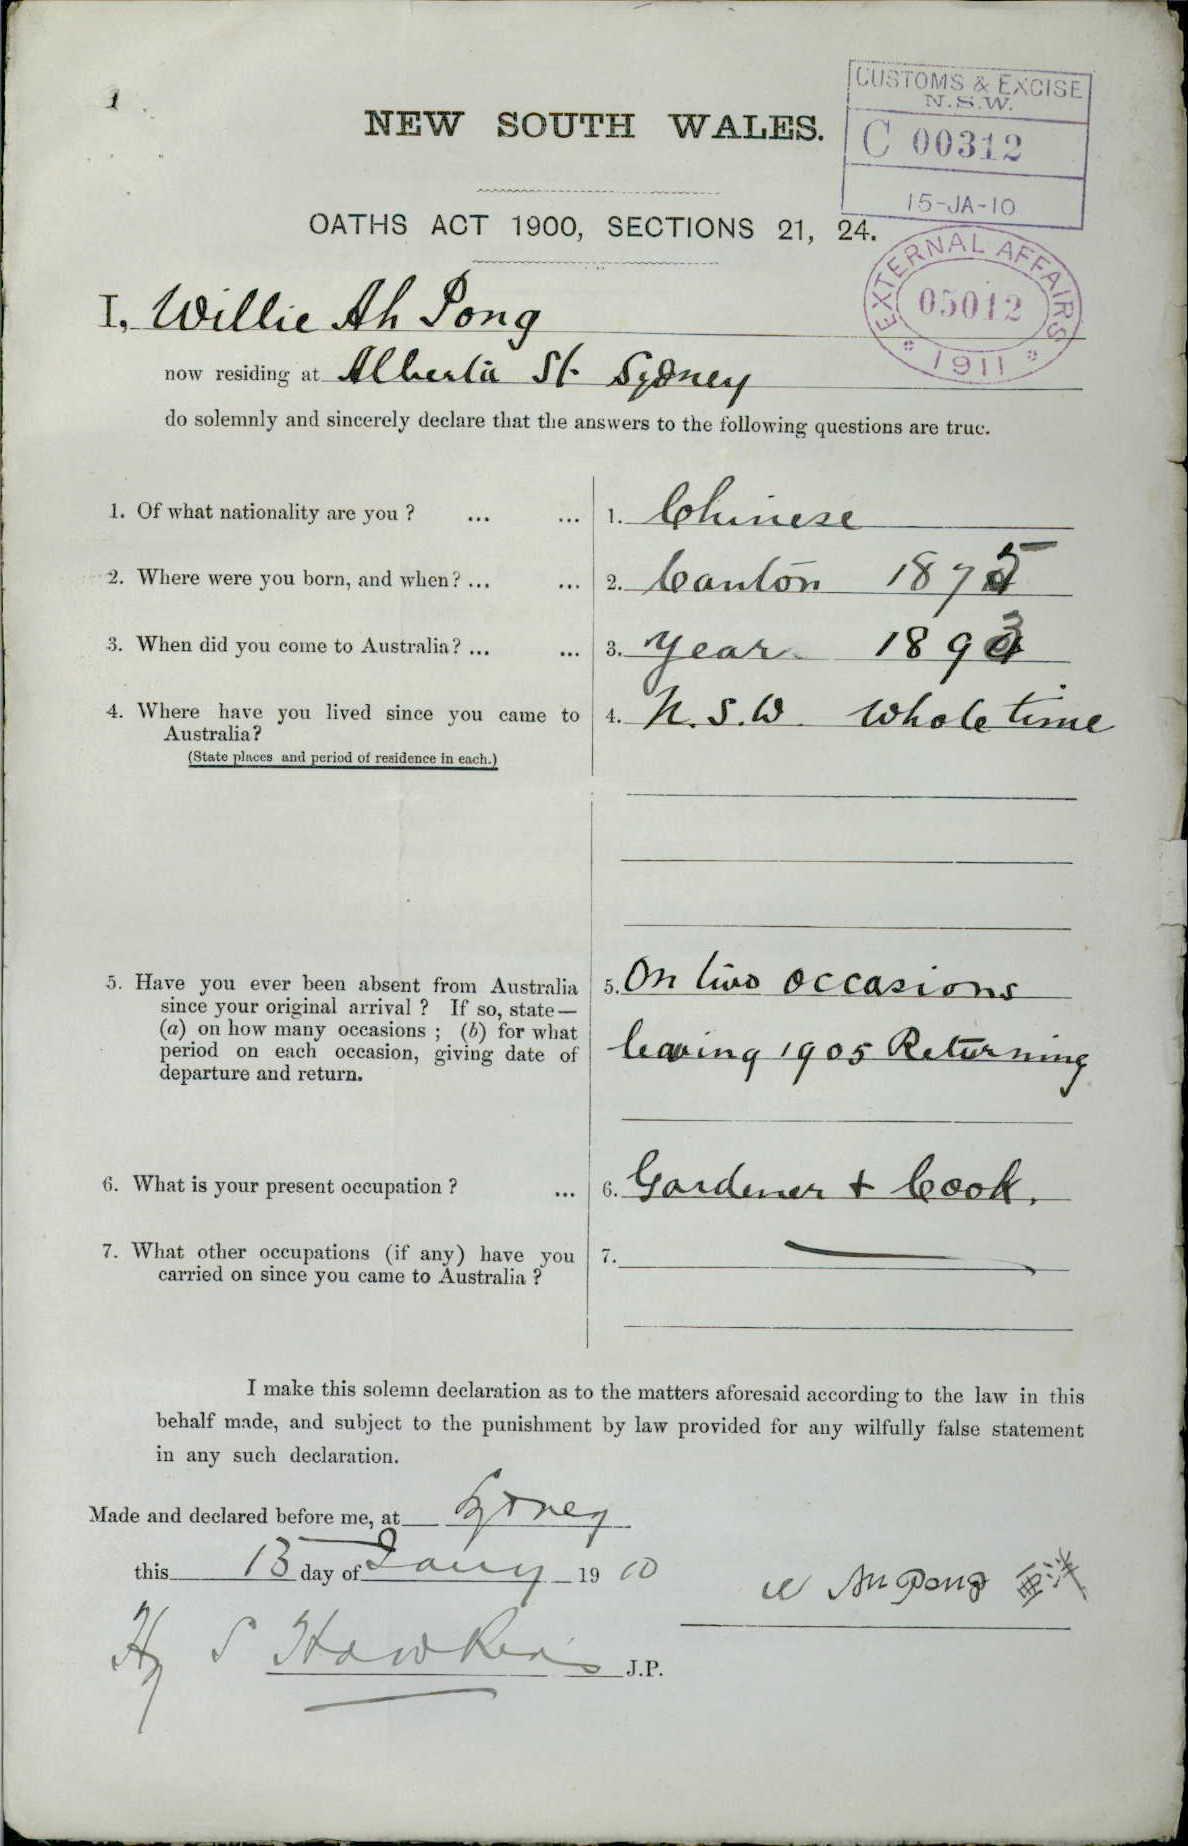 CUSTOMS & EXCISE
N.S.W.
C 00312
15-JA-10
NEW SOUTH WALES.
OATHS ACT 1900, SECTIONS 21, 24.
EXTERNAL AFFAIRS
05012
1911
I, Willie Ah Pong
now residing at Alberta St Sydney
do solemnly and sincerely declare that the answers to the following questions are true.
1. Of what nationality are you ? ... ... 1. Chinese
2. Where were you born, and when? ... ... 2. Canton 1875
3. When did you come to Australia? ... ... 3. Year 1893
4. Where have you lived since you came to 4. N.S.W whole time
Australia?
(State places and period of residence in each.)
5. Have you ever been absent from Australia 5. On two occasions
since your original arrival ? If so, state—
(a) on how many occasions ; (b) for what
period on each occasion, giving date of leaving 1905 Returning
departure and return.
6. What is your present occupation ? ... 6. Gardener + Cook.
7. What other occupations (if any) have you 7.
carried on since you came to Australia ?
I make this solemn declaration as to the matters aforesaid according to the law in this
behalf made, and subject to the punishment by law provided for any wilfully false statement
in any such declaration.
Made and declared before me, at Sydney
this 13 day of Jany 1910
W Ah Pong
Hy S Hawkins J.P.